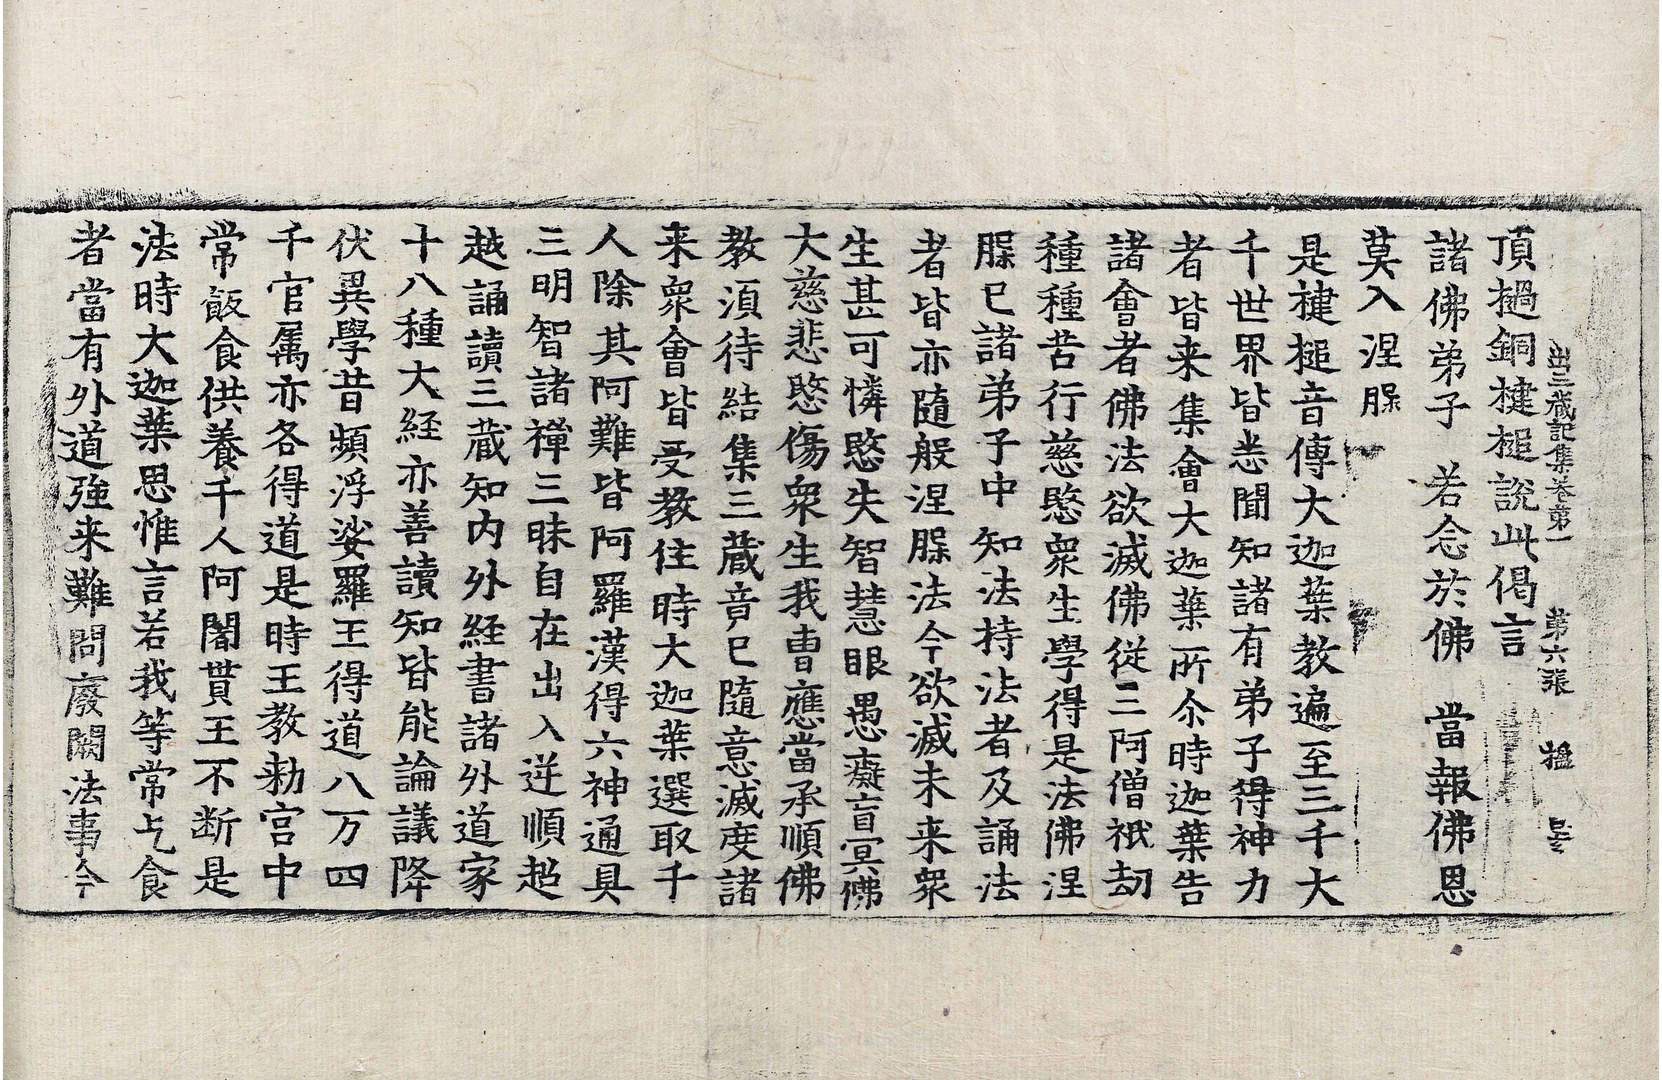 出三蔵記集卷第一 第六張 楹
頂撾銅揵槌說此偈言
諸佛弟子 若念於佛 當報佛恩
莫入涅槃
是揵槌音傳大迦葉教遍至三千大
千世界皆悉聞知諸有弟子得神力
者皆来集會大迦葉所尒時迦葉告
諸會者佛法欲滅佛從三阿僧祇劫
種種苦行慈愍衆生學得是法佛涅
槃已諸弟子中知法持法者及誦法
者皆亦隨般涅槃法今欲滅未来衆
生甚可憐愍失智慧眼愚癡盲冥佛
大慈悲愍傷衆生我曹應當承順佛
教須待結集三蔵竟已隨意滅度諸
来衆會皆受教住時大迦葉選取千
人除其阿難皆阿羅漢得六神通具
三明智諸禪三昧自在出入逆順超
越誦讀三蔵知内外経書諸外道家
十八種大経亦善讀知皆能論議降
伏異學昔頻浮娑羅王得道八万四
千官属亦各得道是時王教勑宫中
常飯食供養千人阿闍貰王不断是
法時大迦葉思惟言若我等常乞食
者當有外道強来難問廢闕法事今